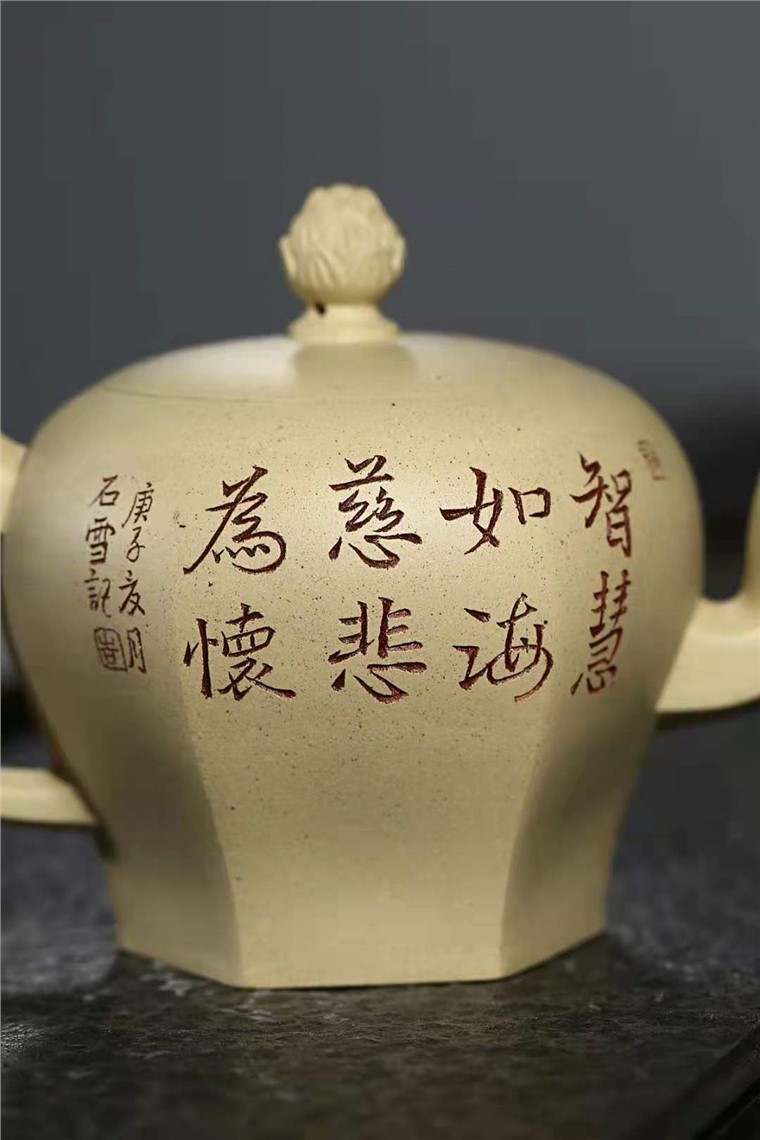 智慧
如海
慈悲
為懷
庚子夜月
石雪記